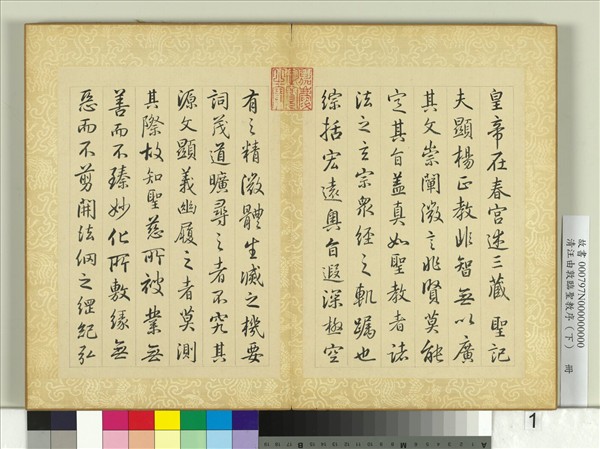 皇帝在春宮述三藏聖記
夫顯楊正教非智無以廣
其文崇闡微言非賢莫能
定其旨蓋真如聖教者諸
法之玄宗眾經之軌躅也
綜括宏遠奧旨遐深極空
有之精微體生滅之機要
詞茂道曠尋之者不究其
源文顯義幽履之者莫測
其際故知聖慈所被業無
善而不臻妙化所敷緣無
惡而不剪開法網之綱紀弘
故書000797N000000000
清汪由敦臨聖教序（下） 冊
1